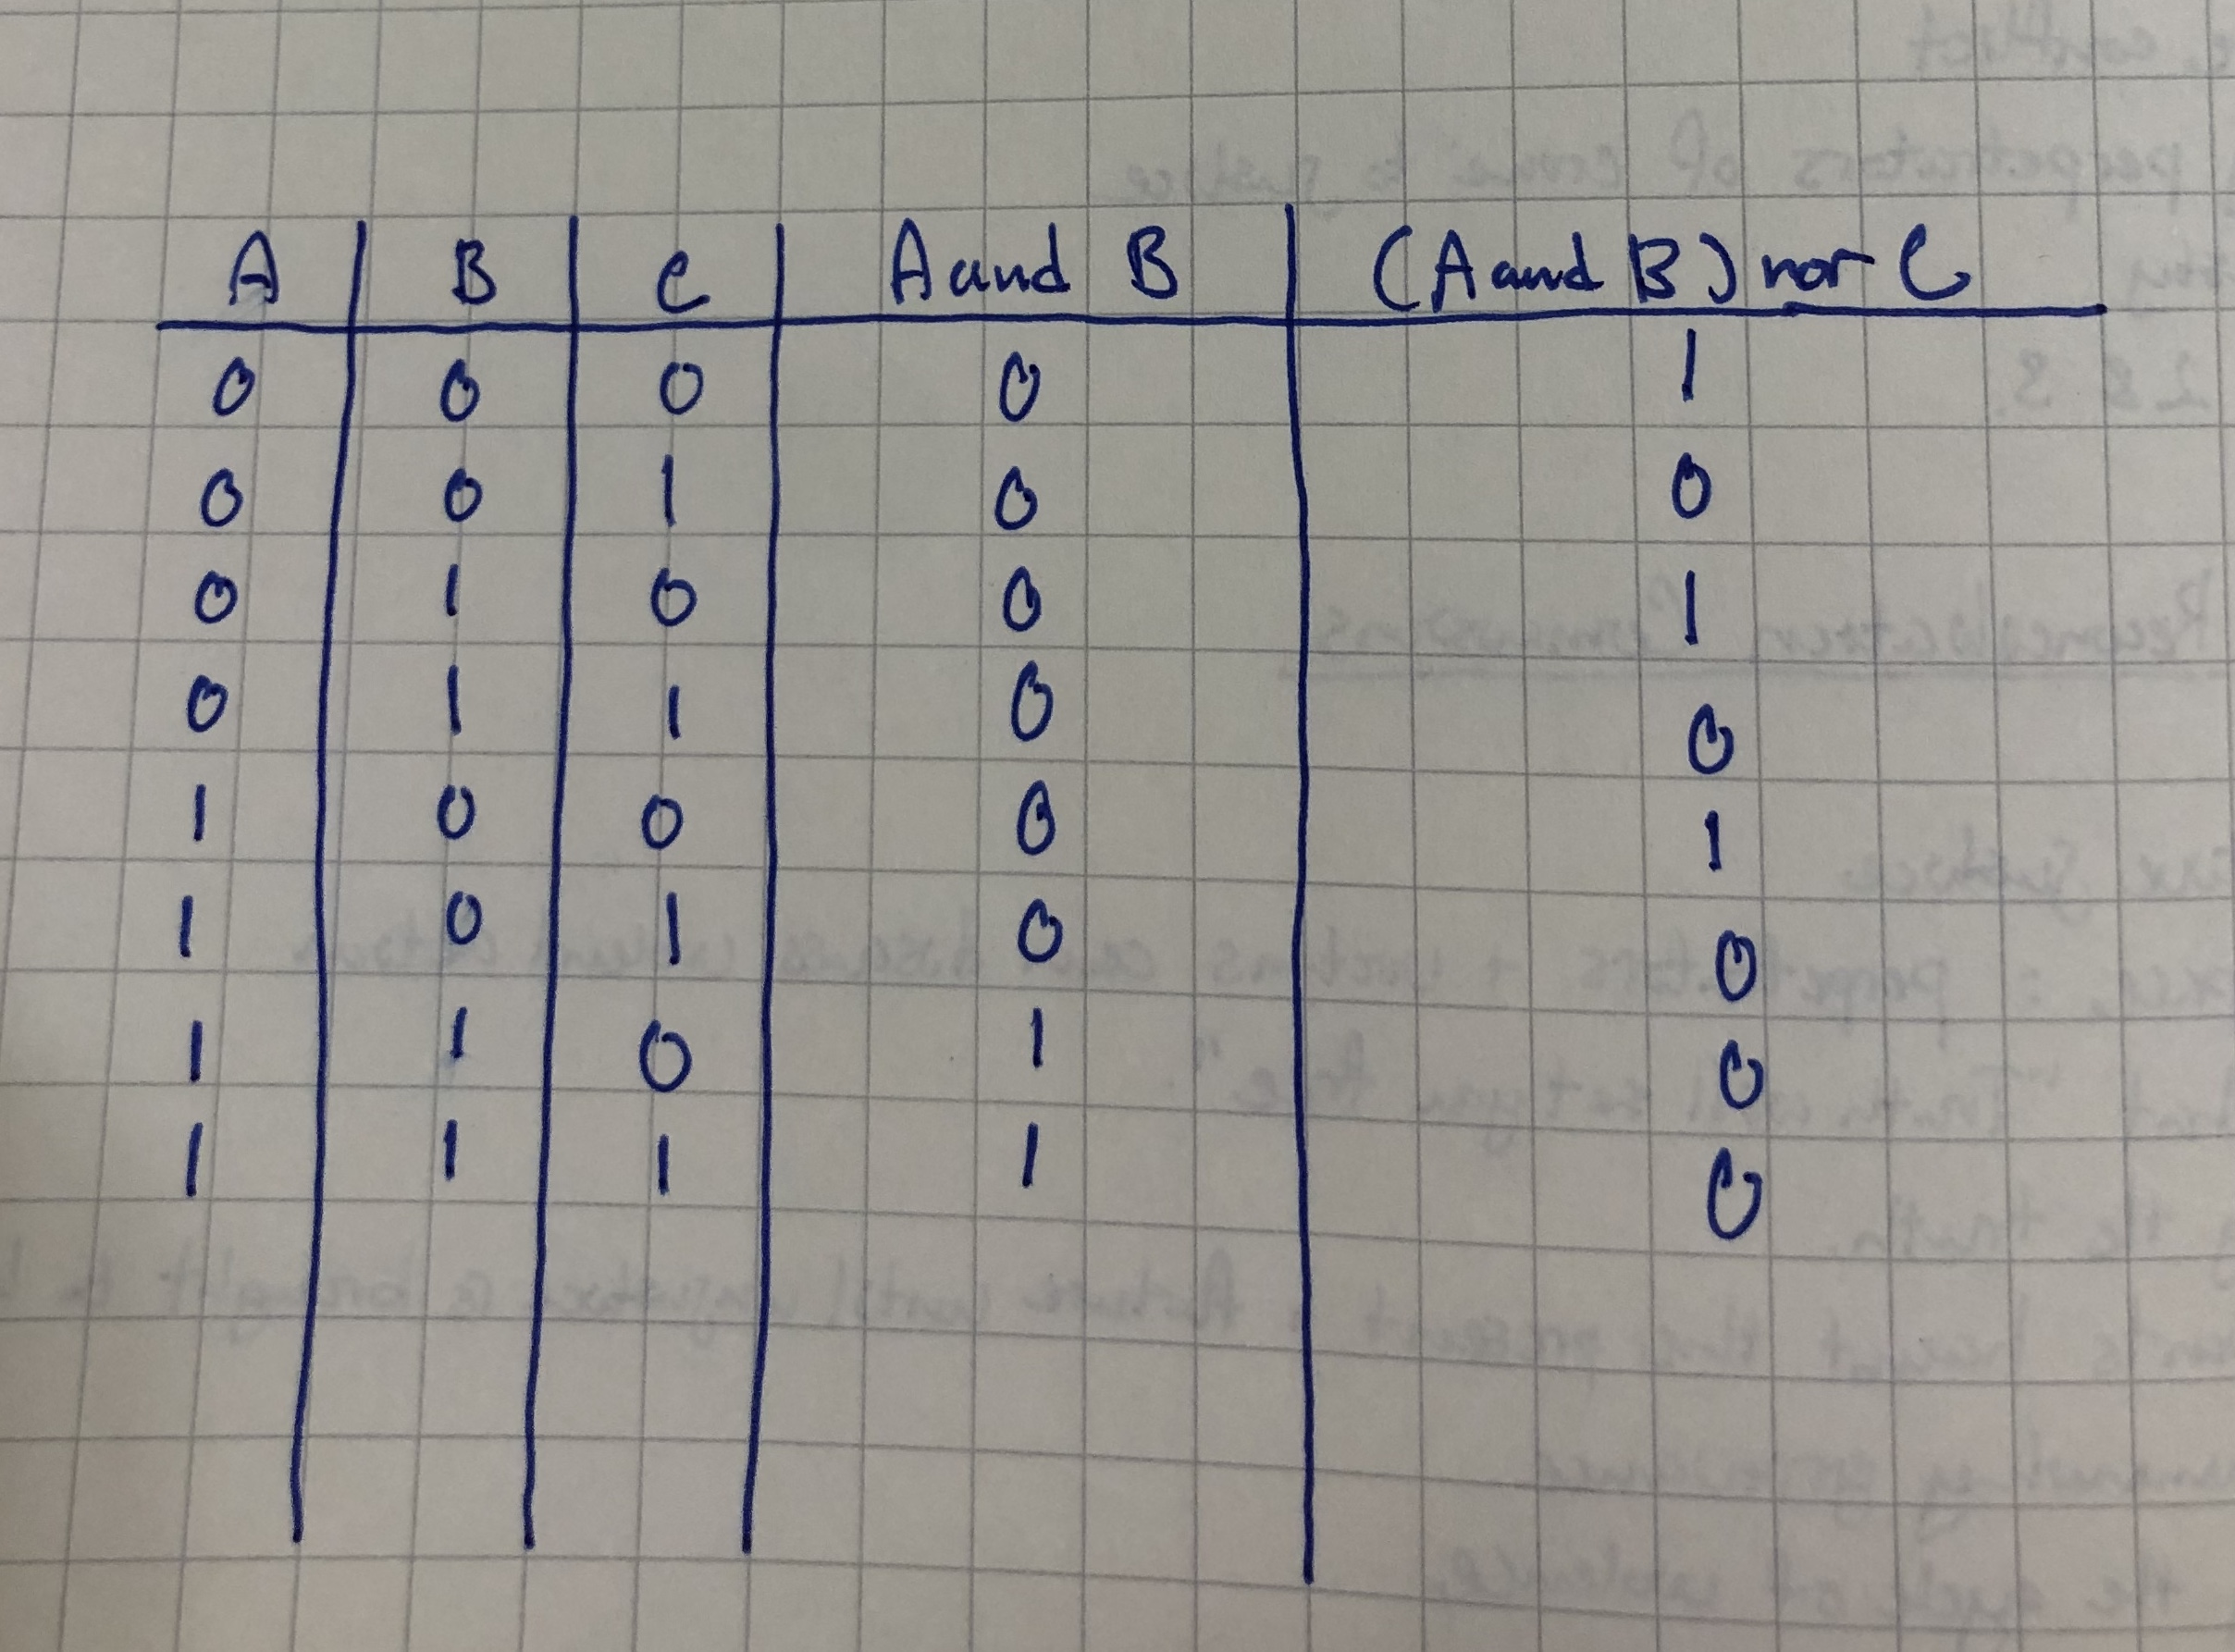 A B C A and B (A and B) nor C
0 0 0 0 1
0 0 1 0 0
0 1 0 0 1
0 1 1 0 0
1 0 0 0 1
1 0 1 0 0
1 1 0 1 0
1 1 1 1 0